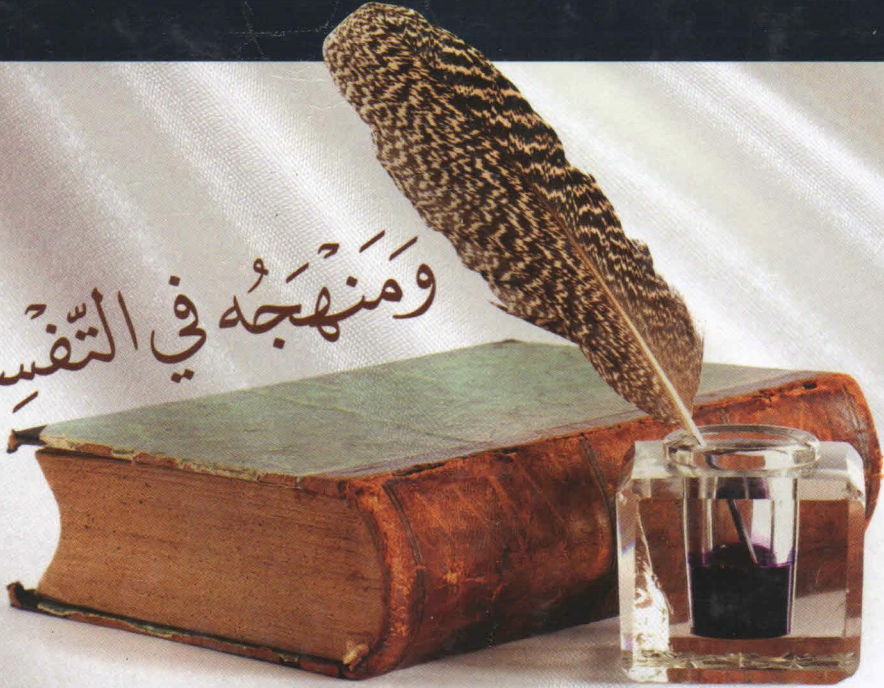 وَمَنْهَجُه في التَّفْسِ